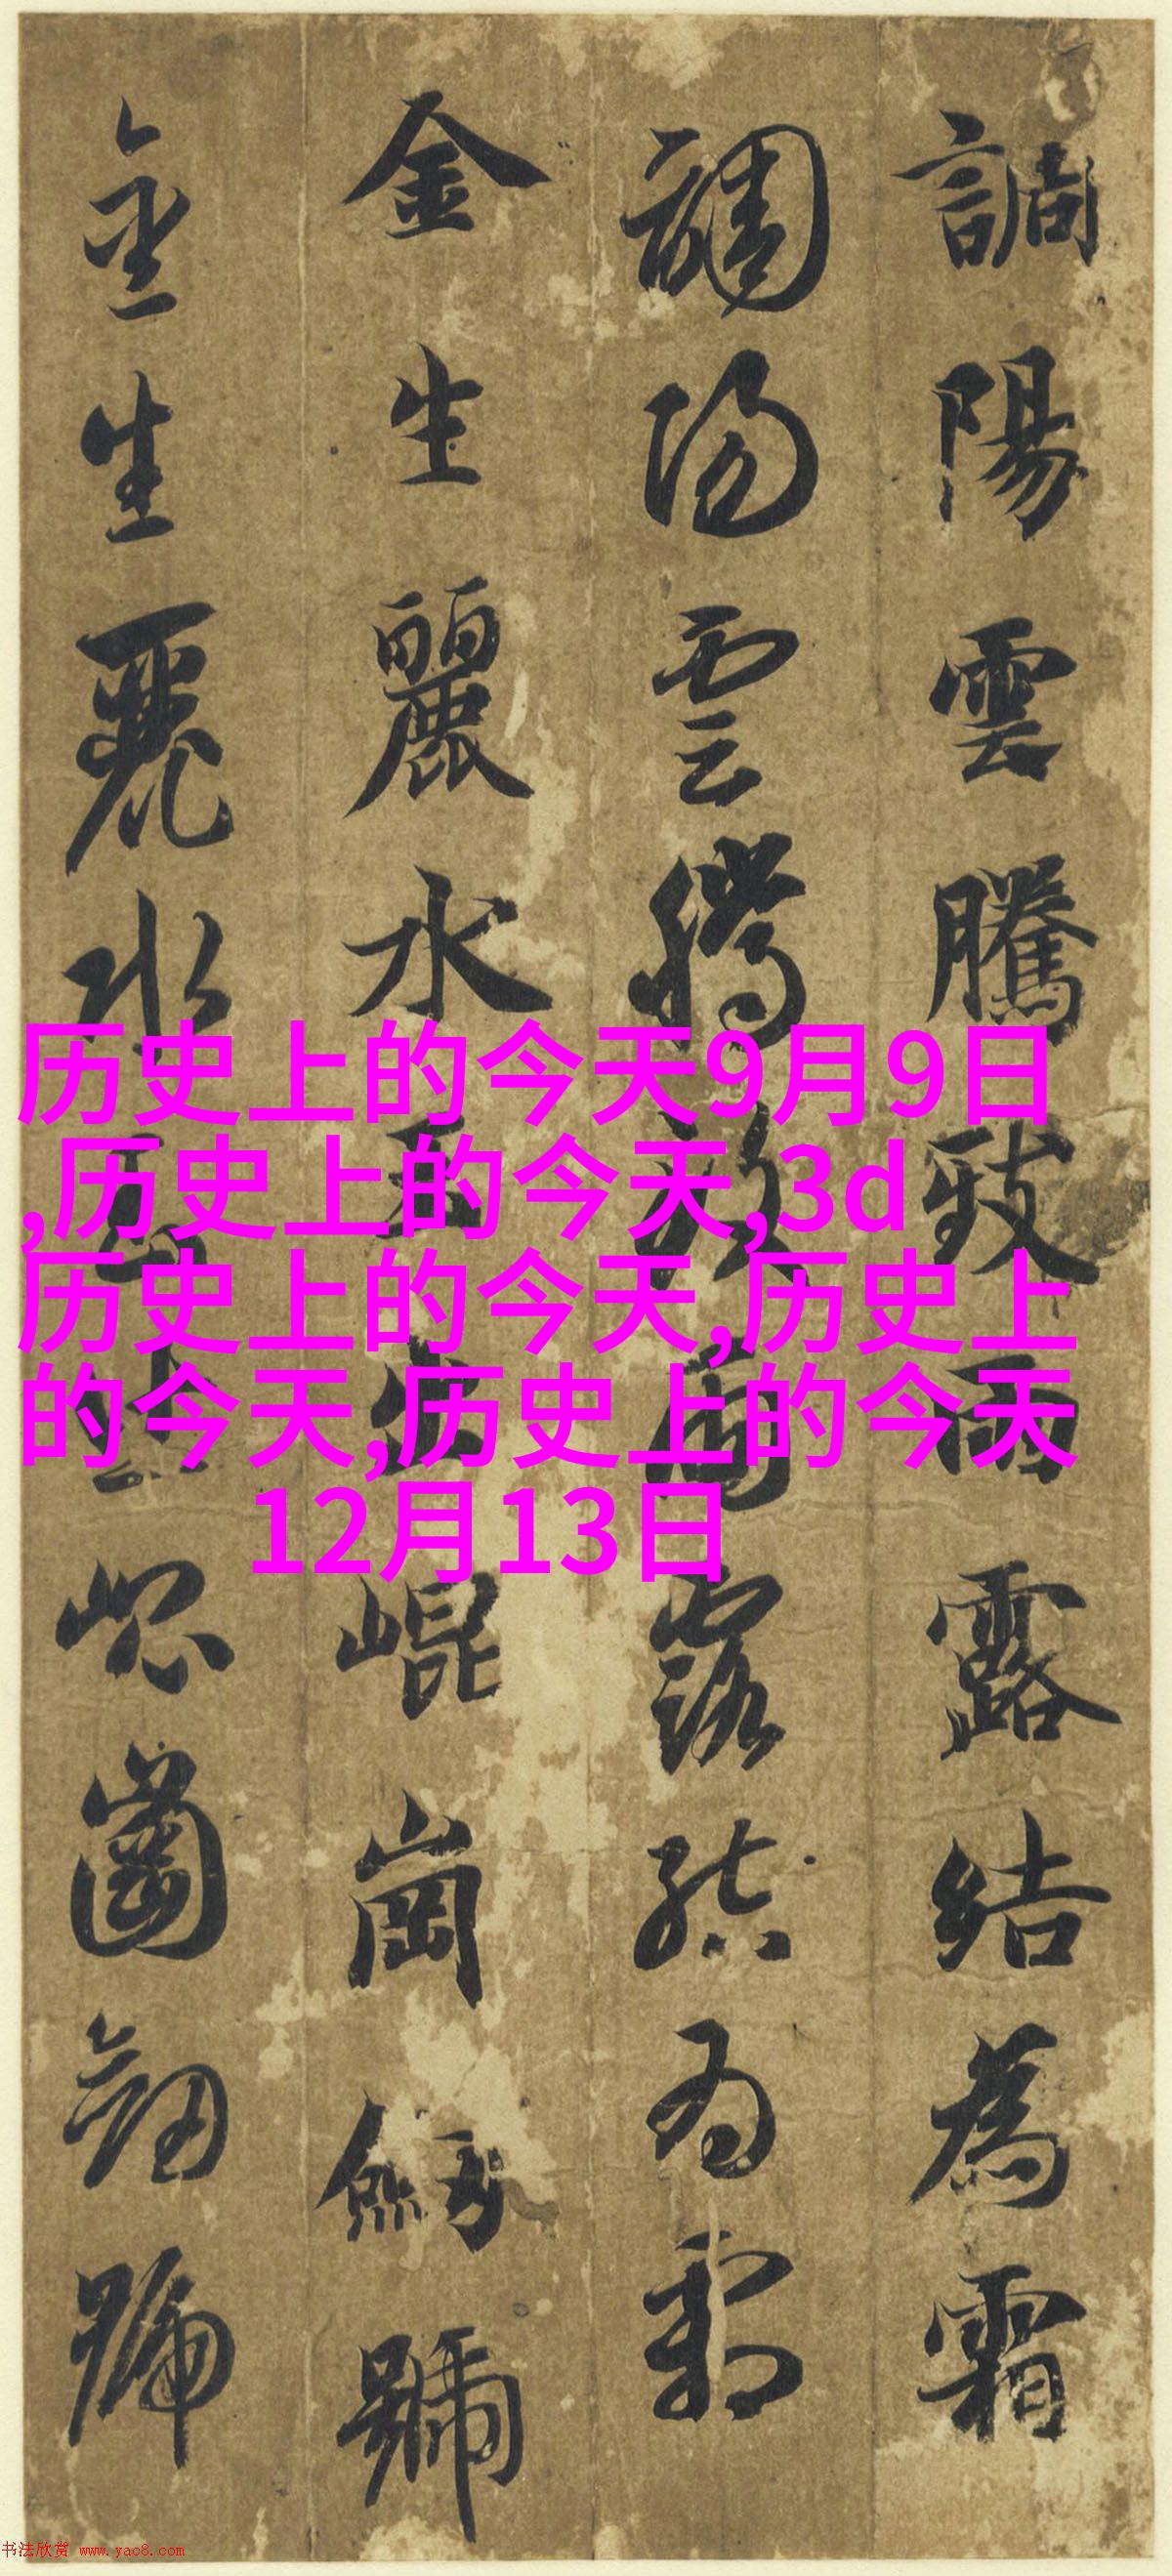 調陽雲騰致雨露結為霜
調陽雲騰致雨露結為霜
金生麗水玉出崐崗劒號
金生麗水玉出崐崗劒號
历史上的今天9月9日
,历史上的今天,3d
历史上的今天,历史上
的今天,历史上的今天
12月13日
书法欣赏 www.yac8.com